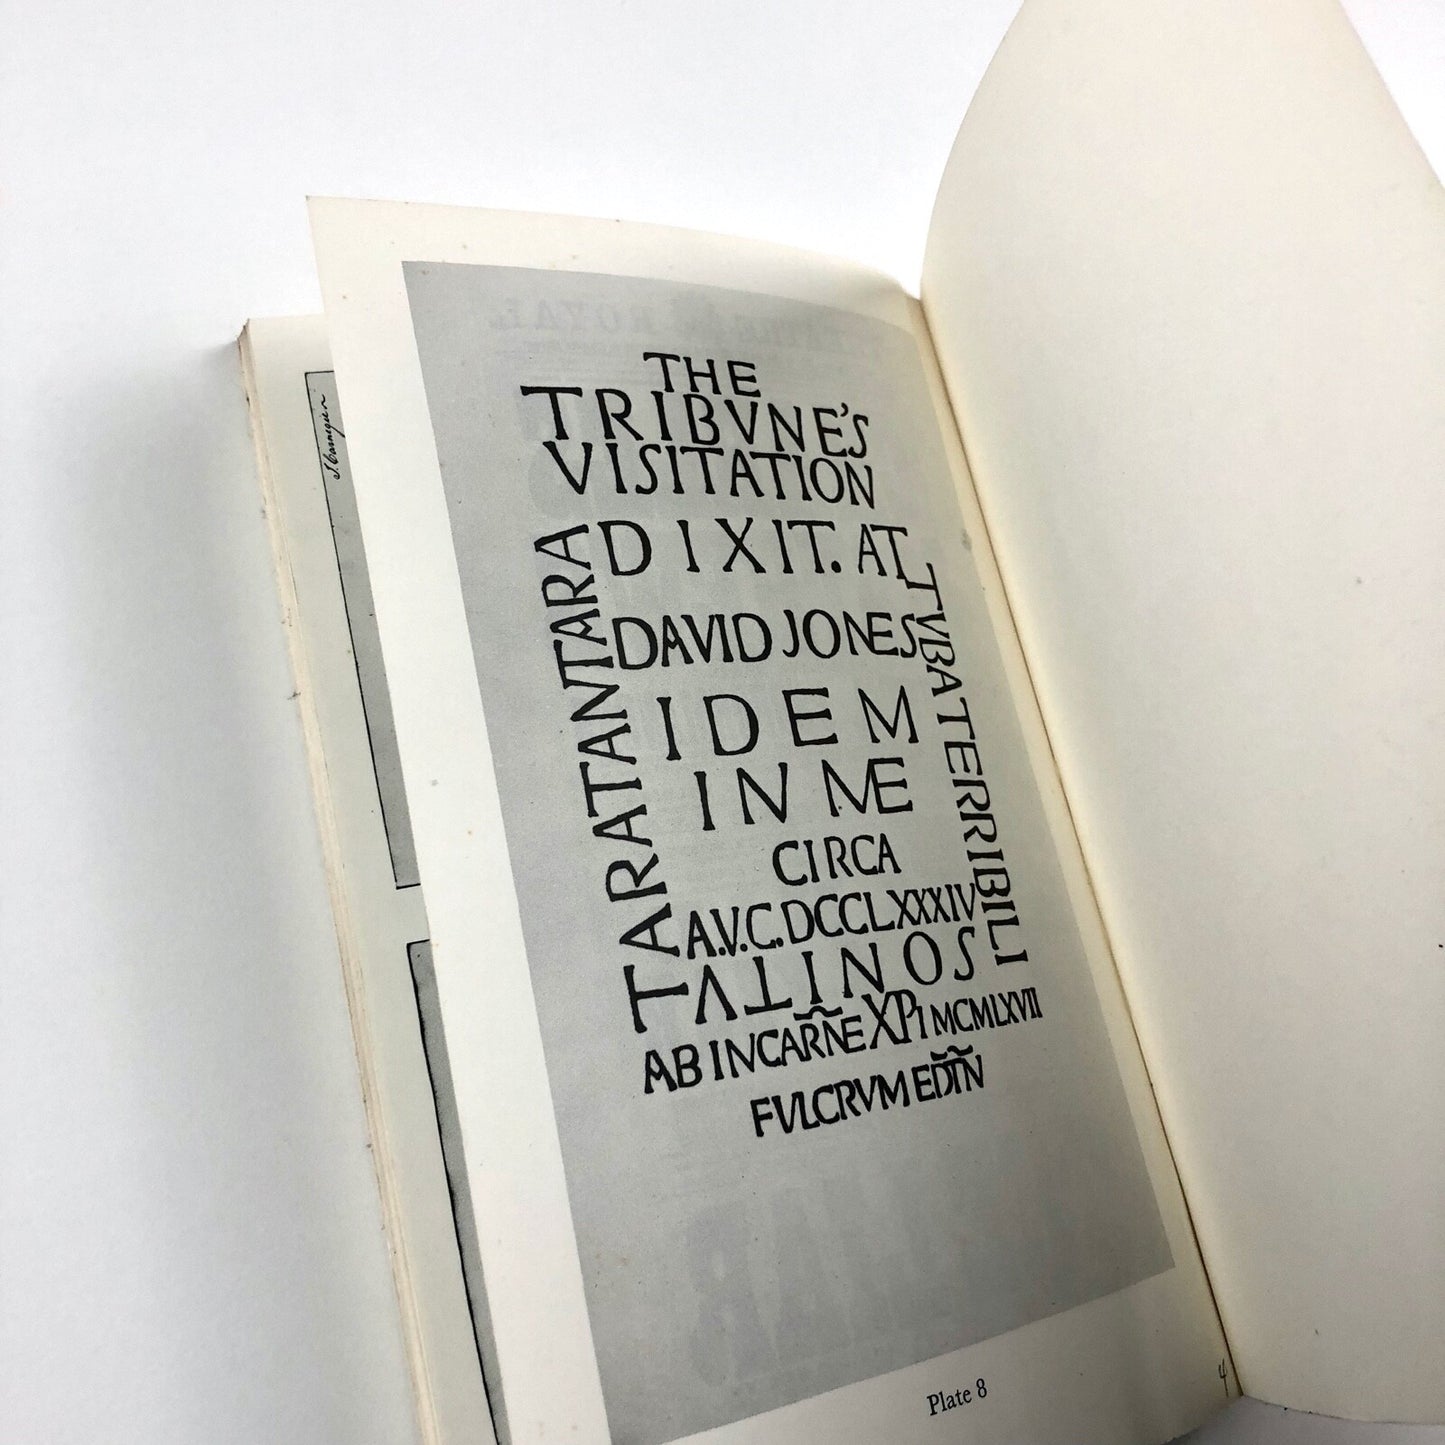 THE
TRIBVNE'S
VISITATION
DIXIT. AT
DAVID JONES
IDEM
IN ME
CIRCA
A.V.C. DCCLXXXIV
LATINOS
AB INCARÑE XPI MCMLXVII
FVLCRVM EDTN
TARATANTARA
TVBA TERRIBILI
Plate 8
4